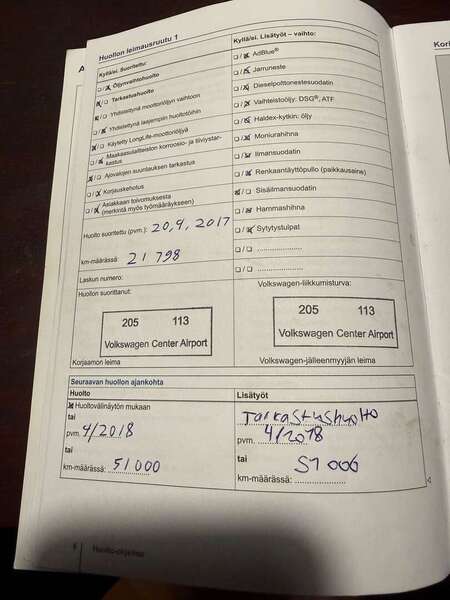 Huollon leimausruutu 1
Kyllä/ei. Suoritettu:
☐/☒ Öljynvaihtohuolto
☒/☐ Tarkastushuolto
☒/☐ Yhdistettynä moottoriöljyn vaihtoon
☐/☒ Yhdistettynä laajempiin huoltotöihin
☒/☐ Käytetty LongLife-moottoriöljyä
☐/☒ Maakaasulaitteiston korroosio- ja tiiviystar-
kastus
☒/☐ Ajovalojen suuntauksen tarkastus
☐/☒ Korjauskehotus
☐/☒ Asiakkaan toivomuksesta
(merkintä myös työmääräykseen)
Huolto suoritettu (pvm.): 20,9, 2017
km-määrässä: 21 798
Laskun numero:
Huollon suorittanut:
205 113
Volkswagen Center Airport
Korjaamon leima
Kyllä/ei. Lisätyöt – vaihto:
☐/☒ AdBlue®
☐/☒ Jarruneste
☐/☒ Dieselpolttonestesuodatin
☐/☒ Vaihteistoöljy: DSG®, ATF
☐/☒ Haldex-kytkin: öljy
☐/☒ Moniurahihna
☐/☒ Ilmansuodatin
☐/☒ Renkaantäyttöpullo (paikkausaine)
☒/☐ Sisäilmansuodatin
☐/☒ Hammashihna
☐/☒ Sytytystulpat
☐/☐ ....................
☐/☐ ....................
Volkswagen-liikkumisturva:
205 113
Volkswagen Center Airport
Volkswagen-jälleenmyyjän leima
Seuraavan huollon ajankohta
Huolto
☒ Huoltovälinäytön mukaan
tai
pvm. 4/2018
tai
km-määrässä: 51000
Lisätyöt
Tarkastushuolto
pvm. 4/2018
tai
km-määrässä: 51 000
6 Huolto-ohjelma